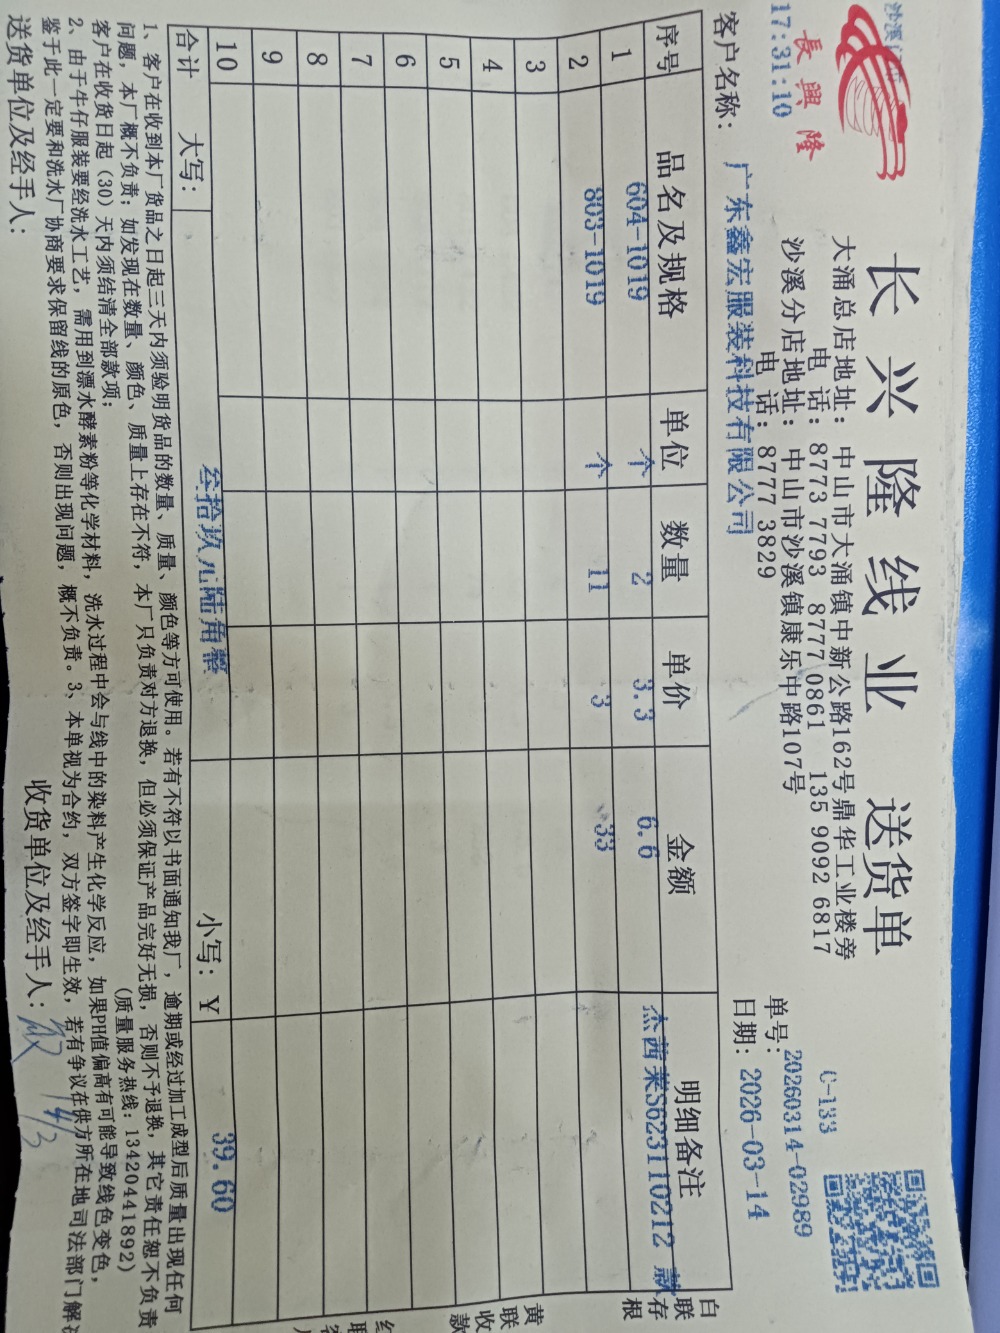 沙溪门市
17:31:10
長興隆
长兴隆线业 送货单
大涌总店地址：中山市大涌镇中新公路162号鼎华工业楼旁
电 话：8773 7793 8777 0861 135 9092 6817
沙溪分店地址：中山市沙溪镇康乐中路107号
电 话：8777 3829
C-133
单号：20260314-02989
日期：2026-03-14
客户名称：广东鑫宏服装科技有限公司
序号 品名及规格 单位 数量 单价 金额 明细备注
1 604-1019 个 2 3.3 6.6 杰西莱S623110212 款
2 803-1019 个 11 3 33
3
4
5
6
7
8
9
10
合计 大写：叁拾玖元陆角整 小写：￥ 39.60
1、客户在收到本厂货品之日起三天内须验明货品的数量、质量、颜色等方可使用。若有不符以书面通知我厂，逾期或经过加工成型后质量出现任何
问题，本厂概不负责；如发现在数量、颜色、质量上存在不符，本厂只负责对方退换，但必须保证产品完好无损，否则不予退换，其它责任恕不负责
客户在收货日起（30）天内须结清全部款项；
（质量服务热线：13420441892）
2、由于牛仔服装要经洗水工艺，需用到漂水酵素粉等化学材料，洗水过程中会与线中的染料产生化学反应，如果PH值偏高有可能导致线色变色，
鉴于此一定要和洗水厂协商要求保留线的原色，否则出现问题，概不负责。3、本单视为合约，双方签字即生效，若有争议在供方所在地司法部门解
送货单位及经手人：
收货单位及经手人：
14/3
白联存根
黄联收款
红联